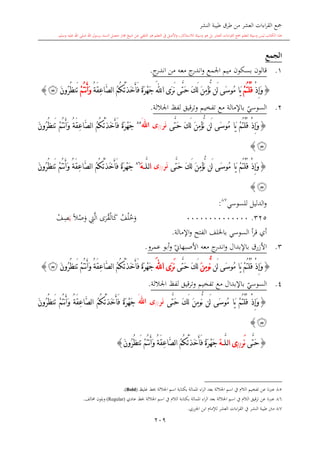 جمع القراءات العشر من طرق طيبة النشر
الجمع
١. قالون بسكون ميم الجمع واندرج معه من اندرج.
﴿ وَإِذْ قُلْتُمْ يَا مُوسَى لَن نُّؤْمِنَ لَكَ حَتَّى نَرَى اللَّهَ جَهْرَةً فَأَخَذَتْكُمُ الصَّاعِقَةُ وَأَنتُمْ تَنظُرُونَ ﴿٥٥﴾ ﴾
٢. السوسيّ بالإمالة مع تفخيم وترقيق لفظ الجلالة.
﴿ وَإِذْ قُلْتُمْ يَا مُوسَى لَن نُّؤْمِنَ لَكَ حَتَّى نَرَى اللَّهَ جَهْرَةً فَأَخَذَتْكُمُ الصَّاعِقَةُ وَأَنتُمْ تَنظُرُونَ
﴿٥٥﴾ ﴾
﴿ وَإِذْ قُلْتُمْ يَا مُوسَى لَن نُّؤْمِنَ لَكَ حَتَّى نَرَى اللَّهَ جَهْرَةً فَأَخَذَتْكُمُ الصَّاعِقَةُ وَأَنتُمْ تَنظُرُونَ
﴿٥٥﴾ ﴾
والدليل للسوسي:
٣٢٥. ٠٠٠٠٠٠٠٠٠٠٠٠٠٠ وَخُلْفٌ كَالْقُرَى الَّتِي وَصْلًا يَصِفْ
أي قرأ السوسي بالخلف الفتح والإمالة.
٣. الأزرق بالإبدال واندرج معه الأصبهانيّ وأبو عمرو.
﴿ وَإِذْ قُلْتُمْ يَا مُوسَى لَن نُّومِنَ لَكَ حَتَّى نَرَى اللَّهَ جَهْرَةً فَأَخَذَتْكُمُ الصَّاعِقَةُ وَأَنتُمْ تَنظُرُونَ ﴿٥٥﴾ ﴾
٤. السوسيّ بالإبدال مع تفخيم وترقيق لفظ الجلالة.
﴿ وَإِذْ قُلْتُمْ يَا مُوسَى لَن نُّومِنَ لَكَ حَتَّى نَرَى اللَّهَ جَهْرَةً فَأَخَذَتْكُمُ الصَّاعِقَةُ وَأَنتُمْ تَنظُرُونَ
﴿٥٥﴾ ﴾
﴿ حَتَّى نَرَى اللَّهَ جَهْرَةً فَأَخَذَتْكُمُ الصَّاعِقَةُ وَأَنتُمْ تَنظُرُونَ ﴾
عبرنا عن تفخيم اللام في اسم الجلالة بعد الراء الممالة بكتابة اسم الجلالة بخط غليظ (Bold).
عبرنا عن ترقيق اللام في اسم الجلالة بعد الراء الممالة بكتابة اللام في اسم الجلالة بخط عادي (Regular) وبلون مخالف.
متن طيبة النشر في القراءات العشر للإمام ابن الجزري.
٢٠٩